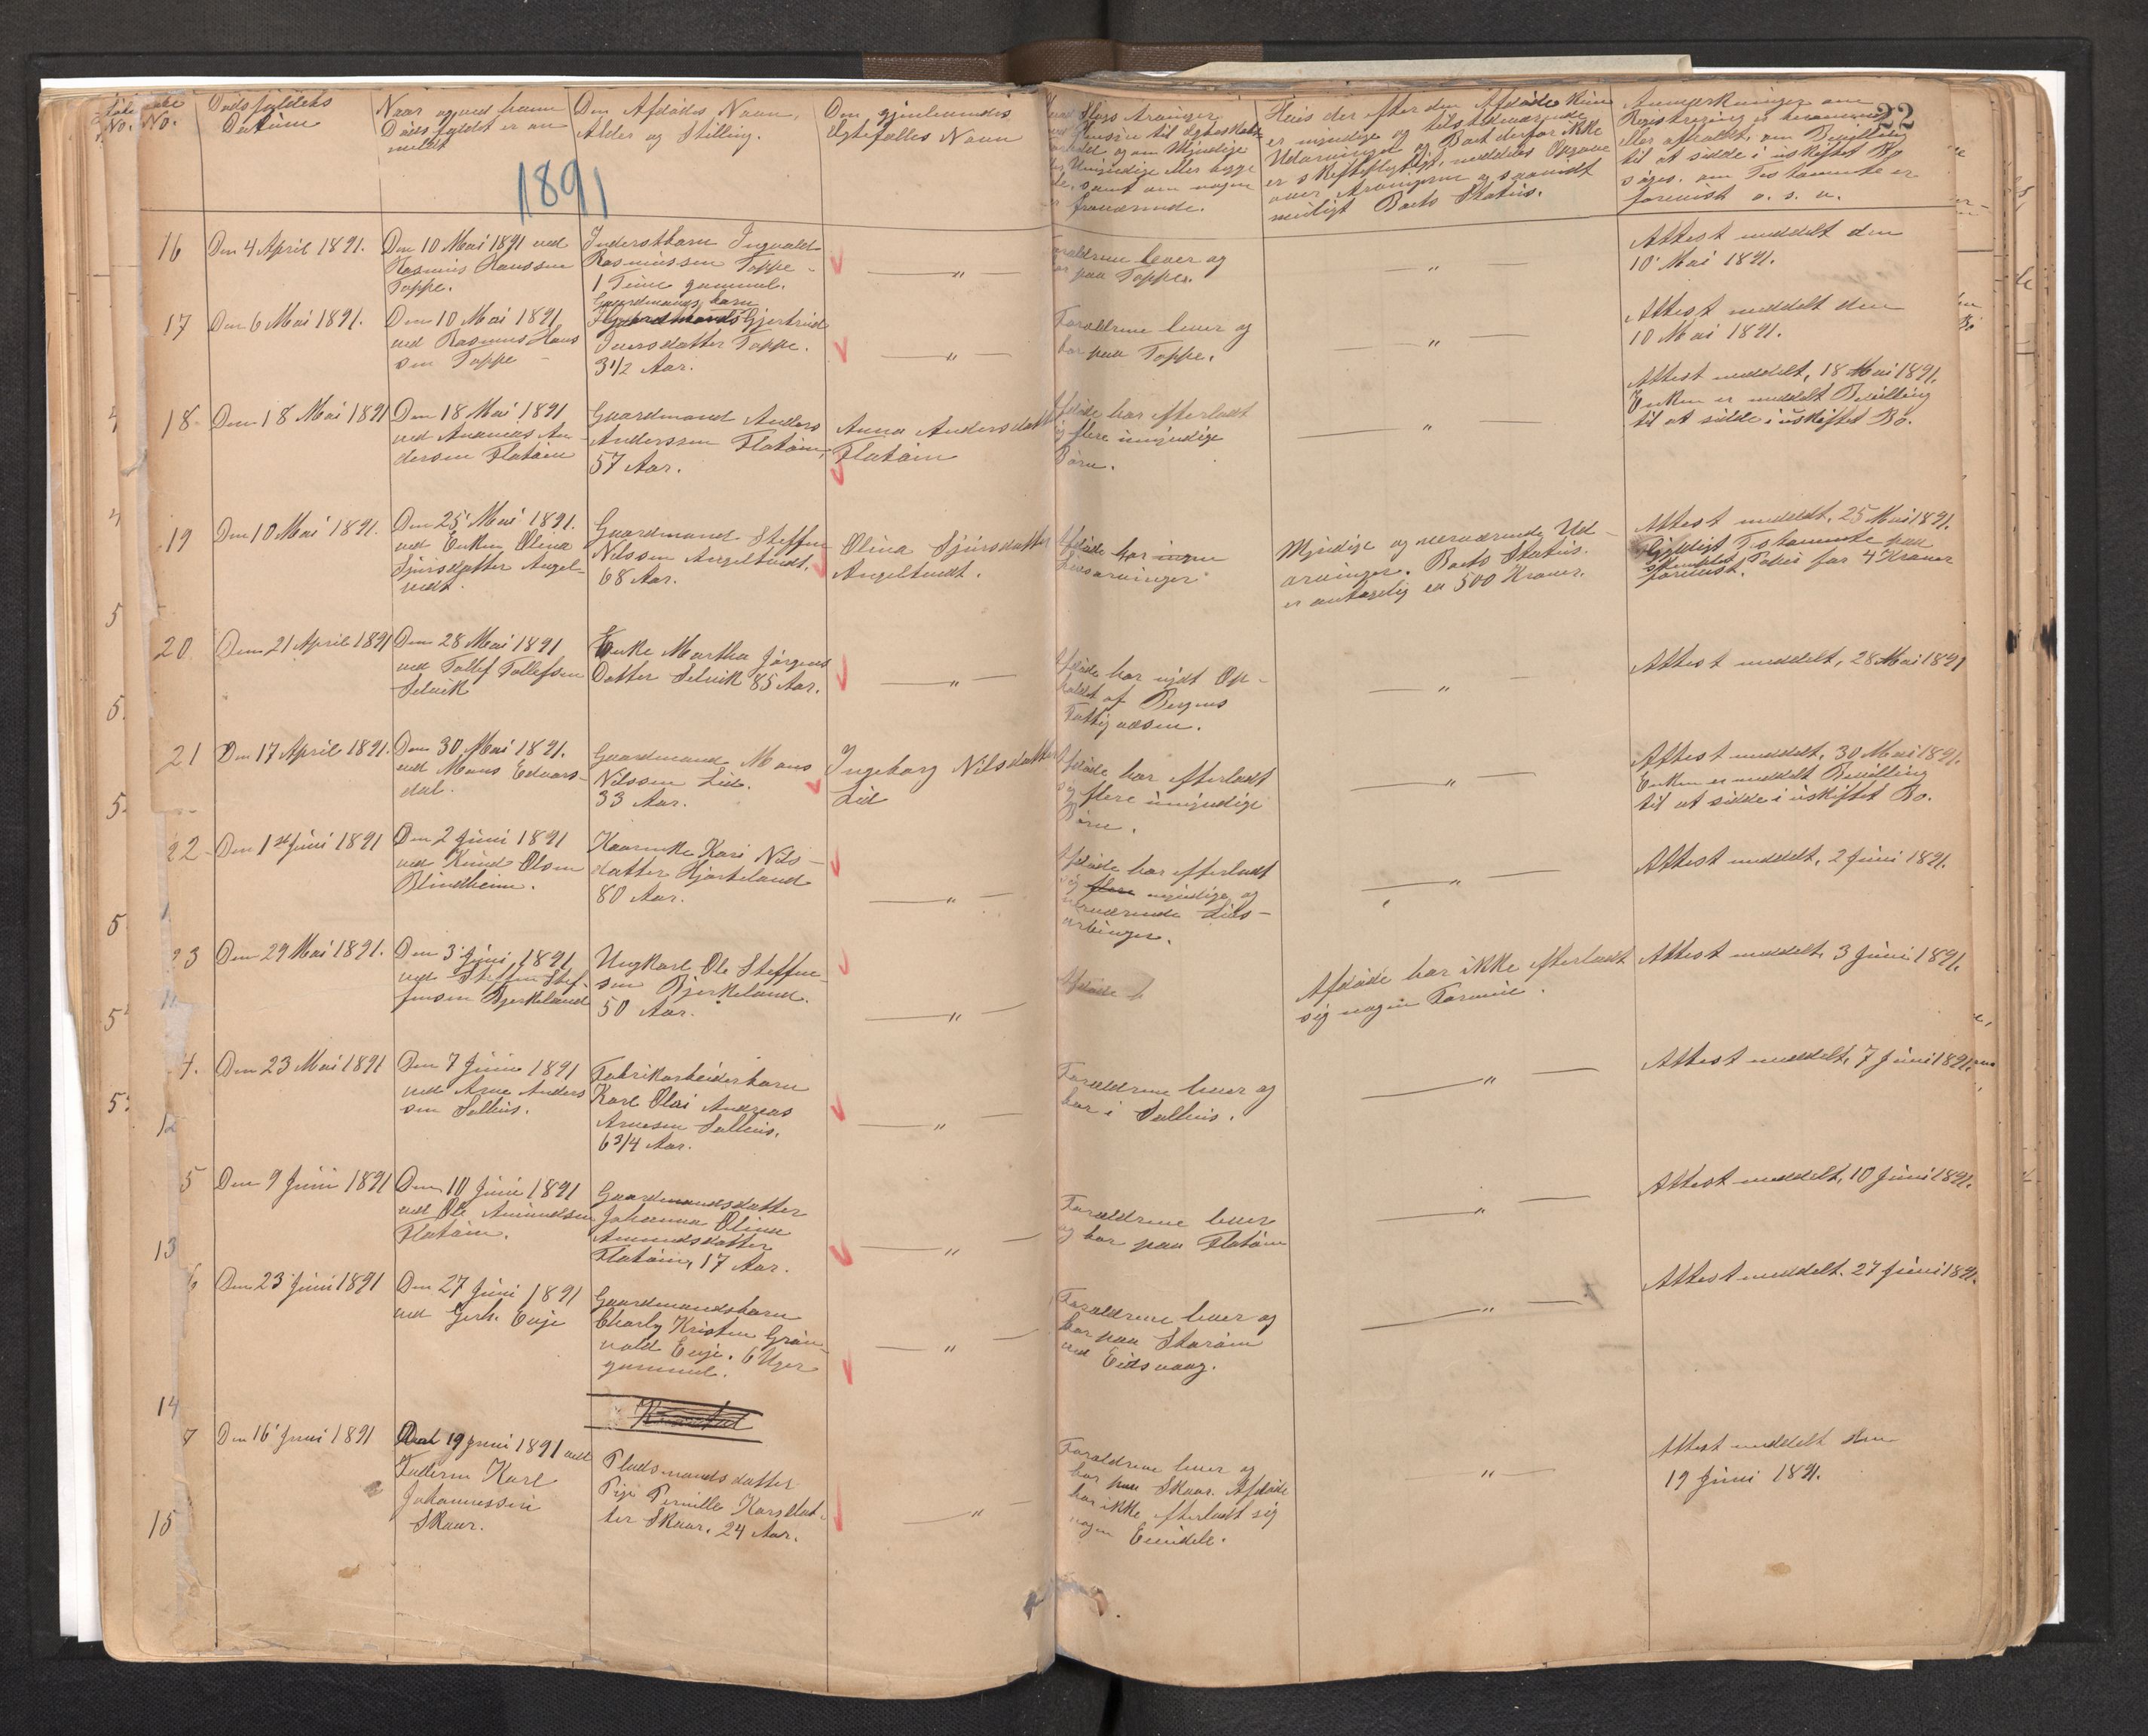 22
Løbe No.
Dødsfaldets
Datum
Naar og ved hvem
Dødsfaldet er an
meldt
Den Afdødes Navn,
Alder og Stilling.
Den gjenlevendes
Ægtefælles Navn
Hvad Slags Arvinger
med Hensyn til Ægteskabs
forhold og om Myndige
de, samt om nogen
er fraværende.
Hvis der efter den Afdøde kun
er myndige og tilstedeværende
Udarvinger og Boet derfor ikke
er skiftepligtigt, meddeles Opgave
over Arvingerne og saavidt
muligt Boets Status.
Anmærkninger om
Registrering er berammet
eller afholdt, om Bevilling
til at sidde i uskiftet Bo
søges, om Testamente er
forevist o. s. v.
1891
16
Den 4 April 1891.
Den 10 Mai 1891 ved
Rasmus Hanssen
Toppe.
Inderstbarn Ingvald
Rasmussen Toppe
1 Time gammel.
— " —
Forældrene lever og
bor paa Toppe.
— " —
Attest meddelt den
10 Mai 1891.
17
Den 6 Mai 1891.
Den 10 Mai 1891
ved Rasmus Hans
sen Toppe
Gaardmands barn
Gjertrud
Iversdatter Toppe.
3 1/2 Aar.
— " —
Forældrene lever og
bor paa Toppe.
— " —
Attest meddelt den
10 Mai 1891.
18
Den 18 Mai 1891
Den 18 Mai 1891
ved Ananias An
dersen Flatøen
Gaardmand Anders
Anderssen Flatøen,
57 Aar.
Anna Andersdatter
Flatøen
Afdøde har efterladt
sig flere umyndige
Børn.
— " —
Attest meddelt, 18 Mai 1891.
Enken er meddelt Bevilling
til at sidde i uskiftet Bo.
19
Den 10 Mai 1891.
Den 25 Mai 1891.
ved Enken Olina
Sjursdatter Angel-
tvedt.
Gaardmand Steffen
Nilssen Angeltvedt.
68 Aar.
Olina Sjursdatter
Angeltvedt.
Afdøde har ingen
Livsarvinger
Myndige og nærværende Ud-
arvinger. Boets Status.
er antagelig ca 500 Kroner.
Attest meddelt, 25 Mai 1891.
Gyldigt Testamente paa
stemplet Papir for 4 Kroner
forevist.
20
Den 21 April 1891
Den 28 Mai 1891
ved Tollef Tollefsen
Selvik
Enke Martha Jørgens
Datter Selvik 85 Aar.
— " —
Afdøde har nydt Op-
holdet af Bergens
Fattigvæsen.
— " —
Attest meddelt, 28 Mai 1891
21
Den 17 April 1891.
Den 30 Mai 1891.
ved Mons Edvars-
dal.
Gaardmand Mons
Nilssen Lid.
33 Aar.
Ingeborg Nilsdatter
Lid
Afdøde har efterladt
sig flere umyndige
Børn.
— " —
Attest meddelt, 30 Mai 1891.
Enken er meddelt Bevilling
til at sidde i uskiftet Bo.
22
Den 1ste Juni 1891
Den 2 Juni 1891
ved Knud Olsen
Blindheim.
Kaarenke Kari Nils-
datter Hjorteland
80 Aar.
— " —
Afdøde har efterladt
sig flere myndige og
nærværende Livs-
arvinger.
— " —
Attest meddelt, 2 Juni 1891.
23
Den 29 Mai 1891.
Den 3 Juni 1891
ved Steffen Stef-
fensen Bjerkeland
Ungkarl Ole Steffen-
sen Bjerkeland.
50 Aar.
— " —
Afdøde h
Afdøde har ikke efterladt
sig nogen Formue.
Attest meddelt, 3 Juni 1891.
4.
Den 23 Mai 1891
Den 7 Juni 1891
ved Arne Anders
sen Salhus.
Fabrikarbeiderbarn
Karl Olai Andreas
Arnesen Salhus.
6 3/4 Aar.
— " —
Forældrene lever og
bor i Salhus.
— " —
Attest meddelt, 7 Juni 1891.
5
Den 9 Juni 1891
Den 10 Juni 1891
ved Ole Amundsen
Flatøen.
Gaardmandsdatter
Johanna Olina
Amundsdatter
Flatøen, 17 Aar.
— " —
Forældrene lever
og bor paa Flatøen
— " —
Attest meddelt, 10 Juni 1891.
6
Den 23 Juni 1891
Den 27 Juni 1891
ved Gerh. Evje
Gaardmandsbarn
Charly Kristen Grøn-
vold Evje. 6 Uger
gammel.
— " —
Forældrene lever og
bor paa Storøen
ved Eidsvaag.
— " —
Attest meddelt. 27 Juni 1891.
7
Den 16 Juni 1891
Den 19 Juni 1891 ved
Faderen Karl
Johannessen
Skaar.
Pladsmandsdatter
Pige Pernille Karsdat-
ter Skaar. 24 Aar.
— " —
Forældrene lever og
bor paa Skaar. Afdøde
har ikke efterladt sig
nogen Eiendele.
— " —
Attest meddelt den
19 Juni 1891.
12
13
14
15